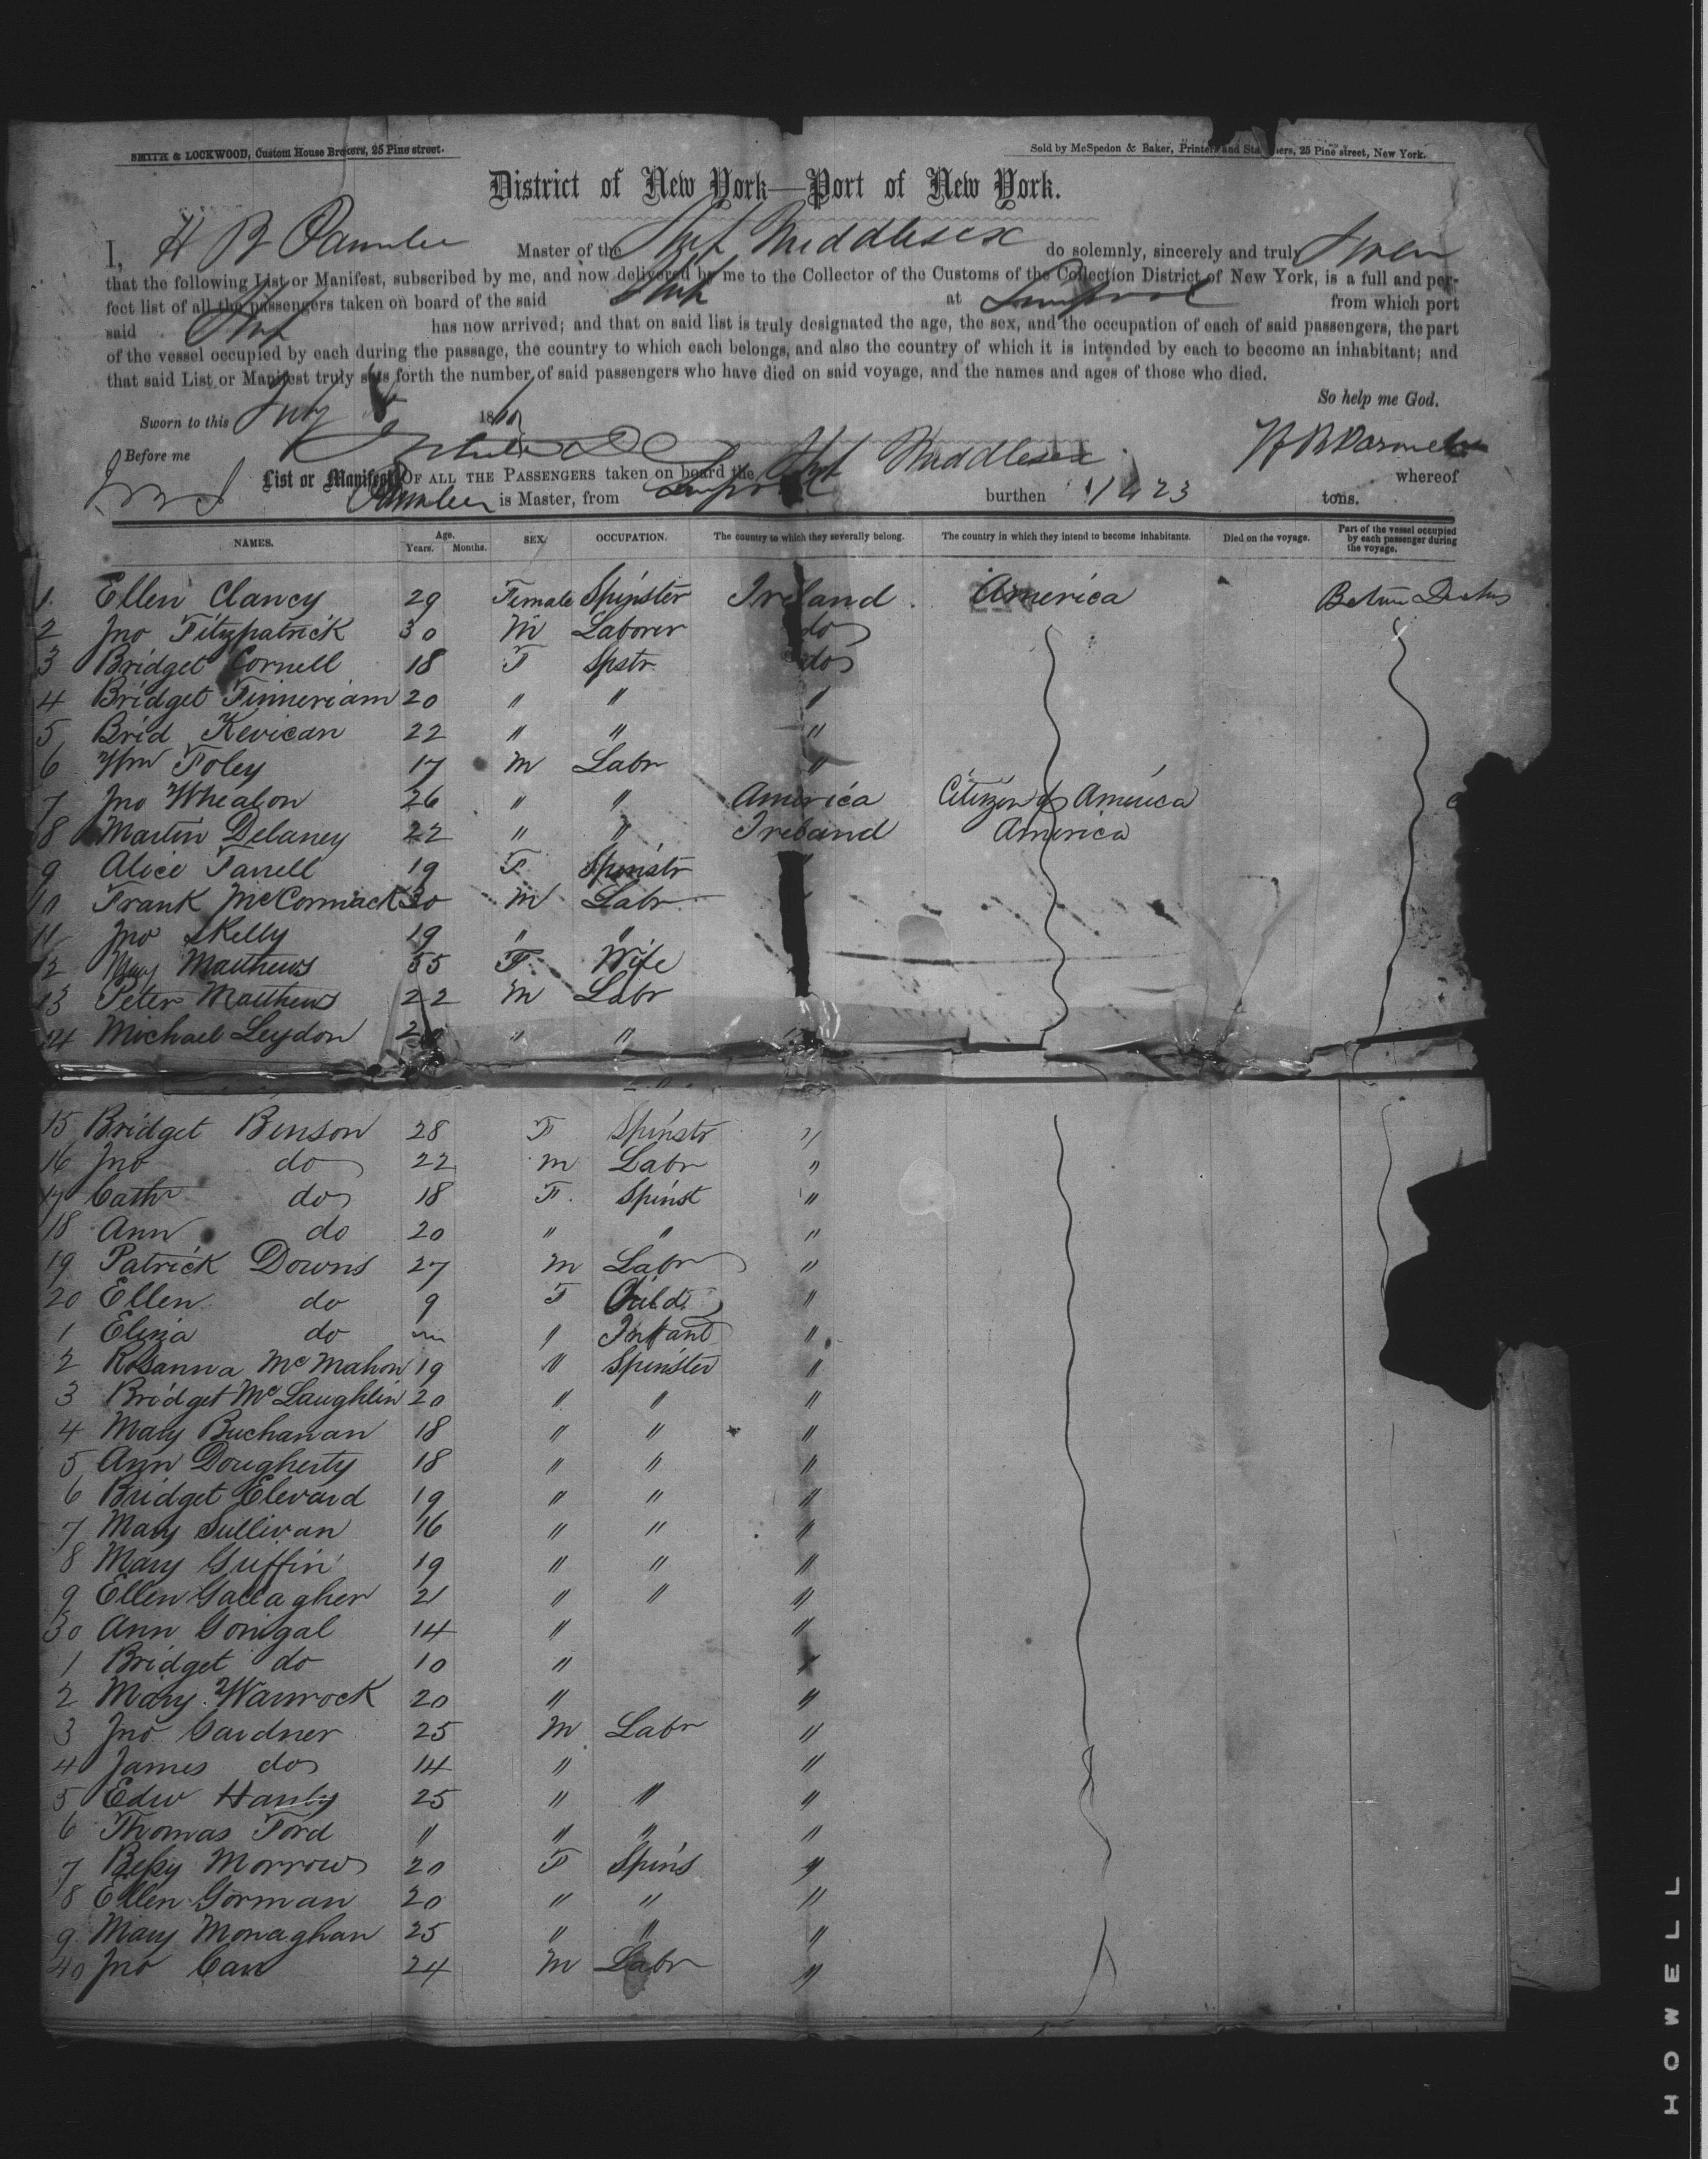 SMITH & LOCKWOOD, Custom House Brokers, 25 Pine street.
Sold by McSpedon & Baker, Printers and Sta ers, 25 Pine street, New York.
District of New York—Port of New York.
I, H B Parmlee Master of the Ship Middlesex do solemnly, sincerely and truly swear
that the following List or Manifest, subscribed by me, and now delivered by me to the Collector of the Customs of the Collection District of New York, is a full and per-
fect list of all the passengers taken on board of the said Ship at Liverpool from which port
said Ship has now arrived; and that on said list is truly designated the age, the sex, and the occupation of each of said passengers, the part
of the vessel occupied by each during the passage, the country to which each belongs, and also the country of which it is intended by each to become an inhabitant; and
that said List or Manifest truly sets forth the number of said passengers who have died on said voyage, and the names and ages of those who died.
So help me God.
Sworn to this 18
Before me
List or Manifest OF ALL THE PASSENGERS taken on board the Ship Middlesex whereof
Parmlee is Master, from Liverpool burthen 1423 tons.
NAMES. Age. Years. Months. SEX. OCCUPATION. The country to which they severally belong. The country in which they intend to become inhabitants. Died on the voyage. Part of the vessel occupied by each passenger during the voyage.
1 Ellen Clancy 29 Female Spinster Ireland America
2 Jno Fitzpatrick 30 M Laborer do
3 Bridget Cornell 18 F Spstr do
4 Bridget Finneriam 20 " " "
5 Brid Kevican 22 " " "
6 Wm Foley 17 M Labr "
7 Jno Whealon 26 " " America Citizen of America
8 Martin Delaney 22 " " Ireland America
9 Alice Farrell 19 F Spinstr
10 Frank McCormack 30 M Labr
11 Jno Skelly 19 " "
12 Mary Matthews 55 F Wife
13 Peter Matthews 22 M Labr
14 Michael Leydon 20 " "
15 Bridget Benson 28 F Spinstr "
16 Jno do 22 M Labr "
17 Cathr do 18 F Spinst "
18 Ann do 20 " " "
19 Patrick Downs 27 M Labr "
20 Ellen do 9 F Child "
1 Eliza do " Infant "
2 Rosanna McMahon 19 " Spinster "
3 Bridget McLaughlin 20 " " "
4 Mary Buchanan 18 " " "
5 Ann Dougherty 18 " " "
6 Bridget Elevard 19 " " "
7 Mary Sullivan 16 " " "
8 Mary Griffin 19 " " "
9 Ellen Gallagher 21 " " "
30 Ann Gonigal 14 " "
1 Bridget do 10 " "
2 Mary Warnock 20 " "
3 Jno Gardner 25 M Labr "
4 James do 14 " "
5 Edw Hanly 25 " " "
6 Thomas Ford " " " "
7 Betsy Morrow 20 F Spins "
8 Ellen Gorman 20 " " "
9 Mary Monaghan 25 " " "
40 Jno Carr 24 M Labr "
HOWELL